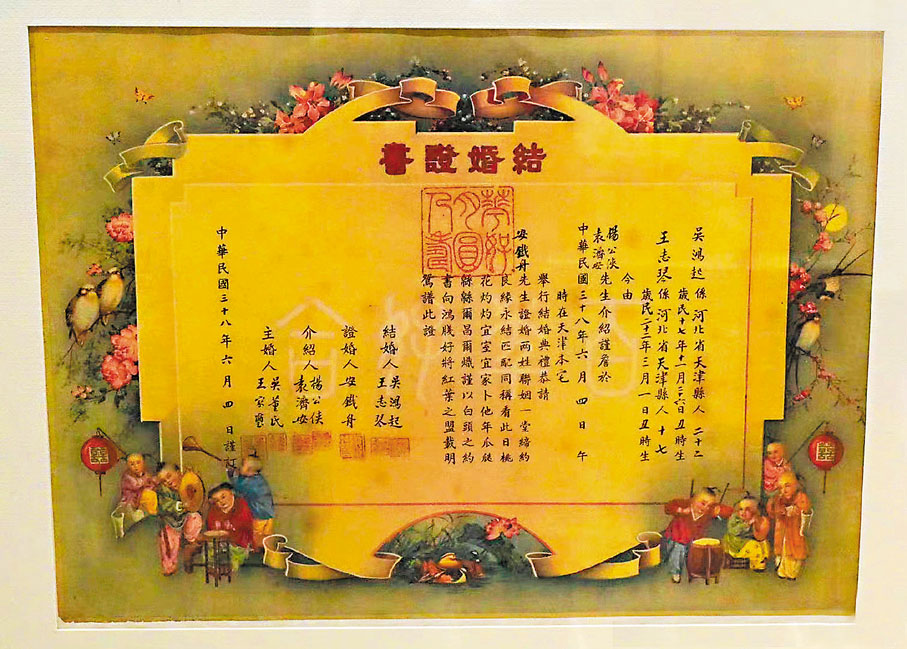 結婚證書
吳鴻起係河北省天津縣人二十二
歲民十七年十一月二六日丑時生
王志琴係河北省天津縣人十七
歲民二十二年三月一日丑時生
今由
楊公俠
袁濟安先生介紹謹詹於
中華民國三十八年六月四日午
時在天津本宅
舉行結婚典禮恭請
安鐵舟先生證婚兩姓聯姻一堂締約
良緣永結匹配同稱看此日桃
花灼灼宜室宜家卜他年瓜瓞
緜緜爾昌爾熾謹以白頭之約
書向鴻牋好將紅葉之盟載明
鴛譜此證
結婚人吳鴻起
王志琴
證婚人安鐵舟
介紹人楊公俠
袁濟安
主婚人吳董氏
王家賓
中華民國三十八年六月四日謹訂
囍
囍